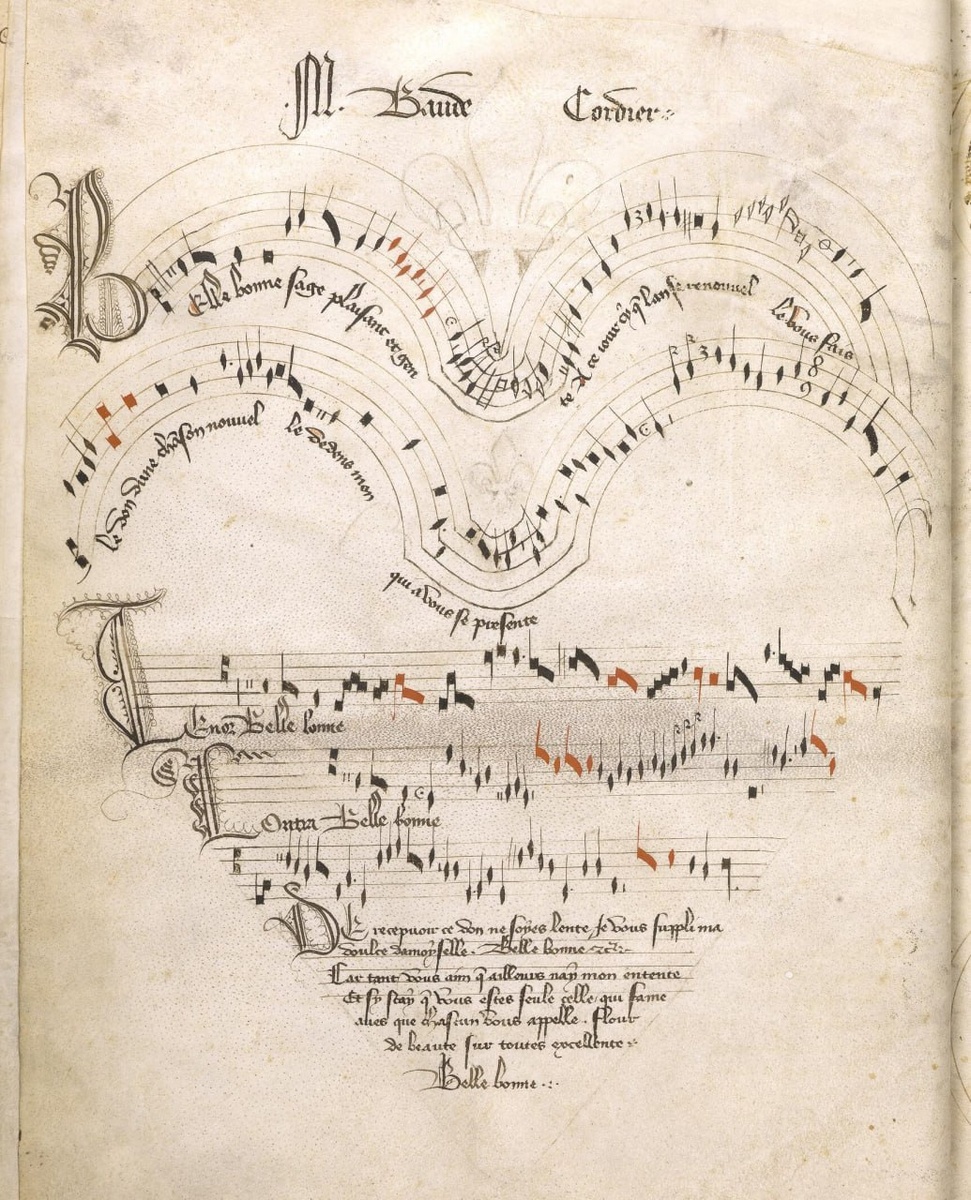 .M. Baude Cordier
Belle bonne sage plaisant et gen
te A ce iour cy q̄ lan se renouvel
le Vous fais
le don dune chanson nouvel
le dedens mon
qui a vous se presente
Tenor Belle bonne
Contra Belle bonne
DE recepvoir ce don ne soyes lente Je vous suppli ma
doulce damoyselle . Belle bonne
Car tant vous aim q̄ ailleurs nay mon entente
Et sy scay q̄ vous estes seule celle qui fame
aves que chascun vous appelle . Flour
de beaute sur toutes excellente
Belle bonne